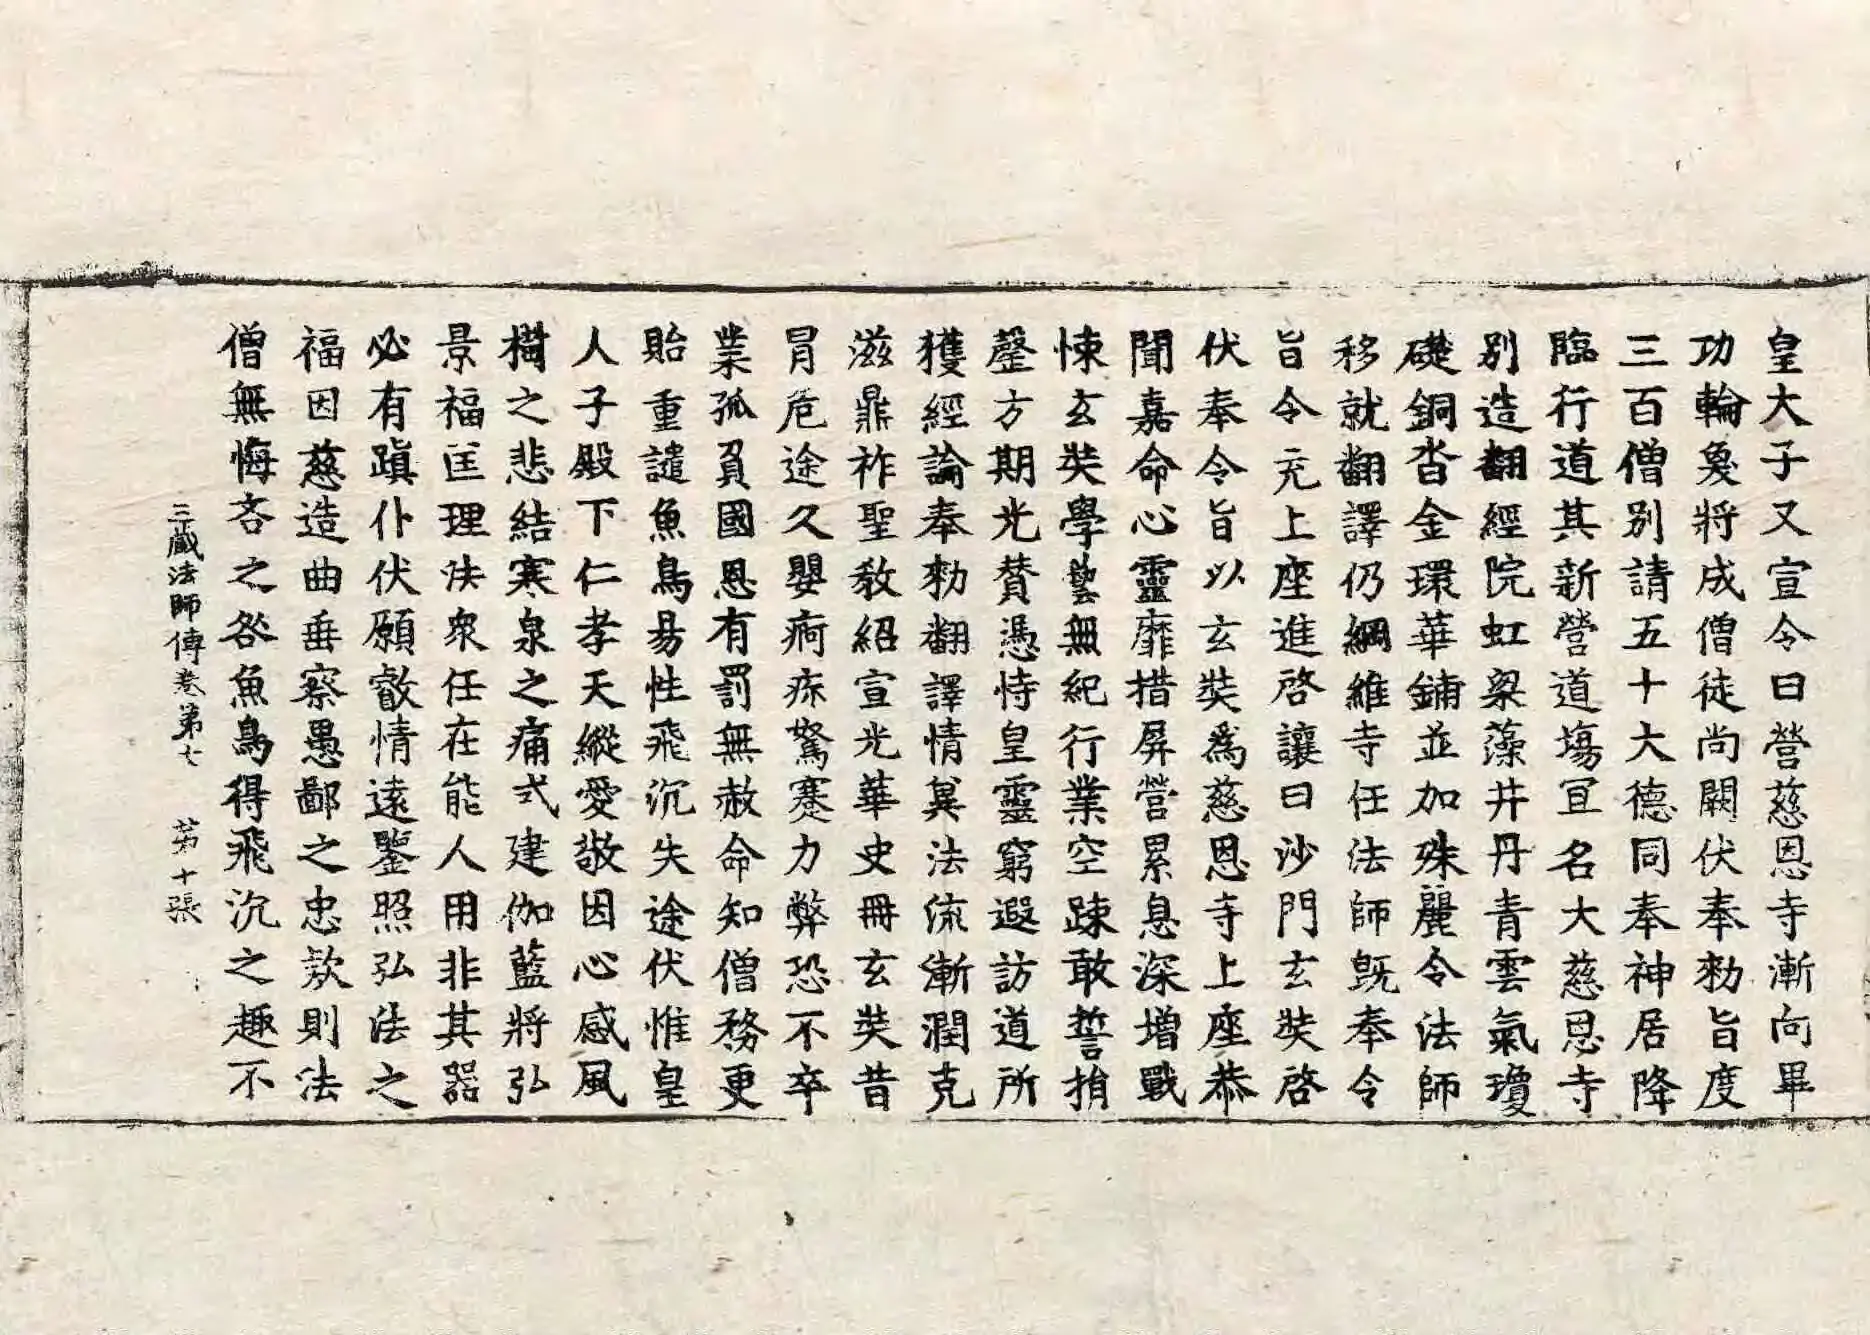 皇太子又宣令曰營慈恩寺漸向畢
功輪奐將成僧徒尚闕伏奉勑旨度
三百僧別請五十大德同奉神居降
臨行道其新營道場宜名大慈恩寺
別造翻經院虹梁藻井丹青雲氣瓊
礎銅沓金環華鋪並加殊麗令法師
移就翻譯仍綱維寺任法師旣奉令
旨令充上座進啓讓曰沙門玄奘啓
伏奉令旨以玄奘爲慈恩寺上座恭
聞嘉命心靈靡措屏營累息深增戰
悚玄奘學藝無紀行業空踈敢誓捐
罄方期光贊憑恃皇靈窮遐訪道所
獲經論奉勑翻譯情兾法流漸潤克
滋鼎祚聖敎紹宣光華史冊玄奘昔
冒危途久嬰痾疹駑蹇力弊恐不卒
業孤負國恩有罰無赦命知僧務更
貽重譴魚鳥易性飛沉失途伏惟皇
人子殿下仁孝天縱愛敬因心感風
樹之悲結寒泉之痛式建伽藍將弘
景福匡理法衆任在能人用非其器
必有蹎仆伏願叡情遠鑒照弘法之
福因慈造曲垂察愚鄙之忠欵則法
僧無悔吝之咎魚鳥得飛沉之趣不
三藏法師傳卷第七 苐十張